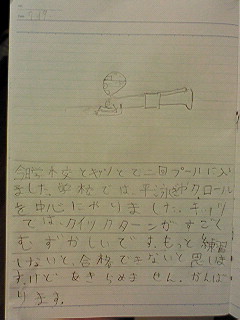 今日学校とキッツとで二回プールに入り
ました。学校では、平泳ぎやクロール
を中心にやりました。キッツ
では、クイックターンがすごく
むずかしいです。もっと練習
しないと、合格できないと思いま
すけど、あきらめません。がんば
ります。